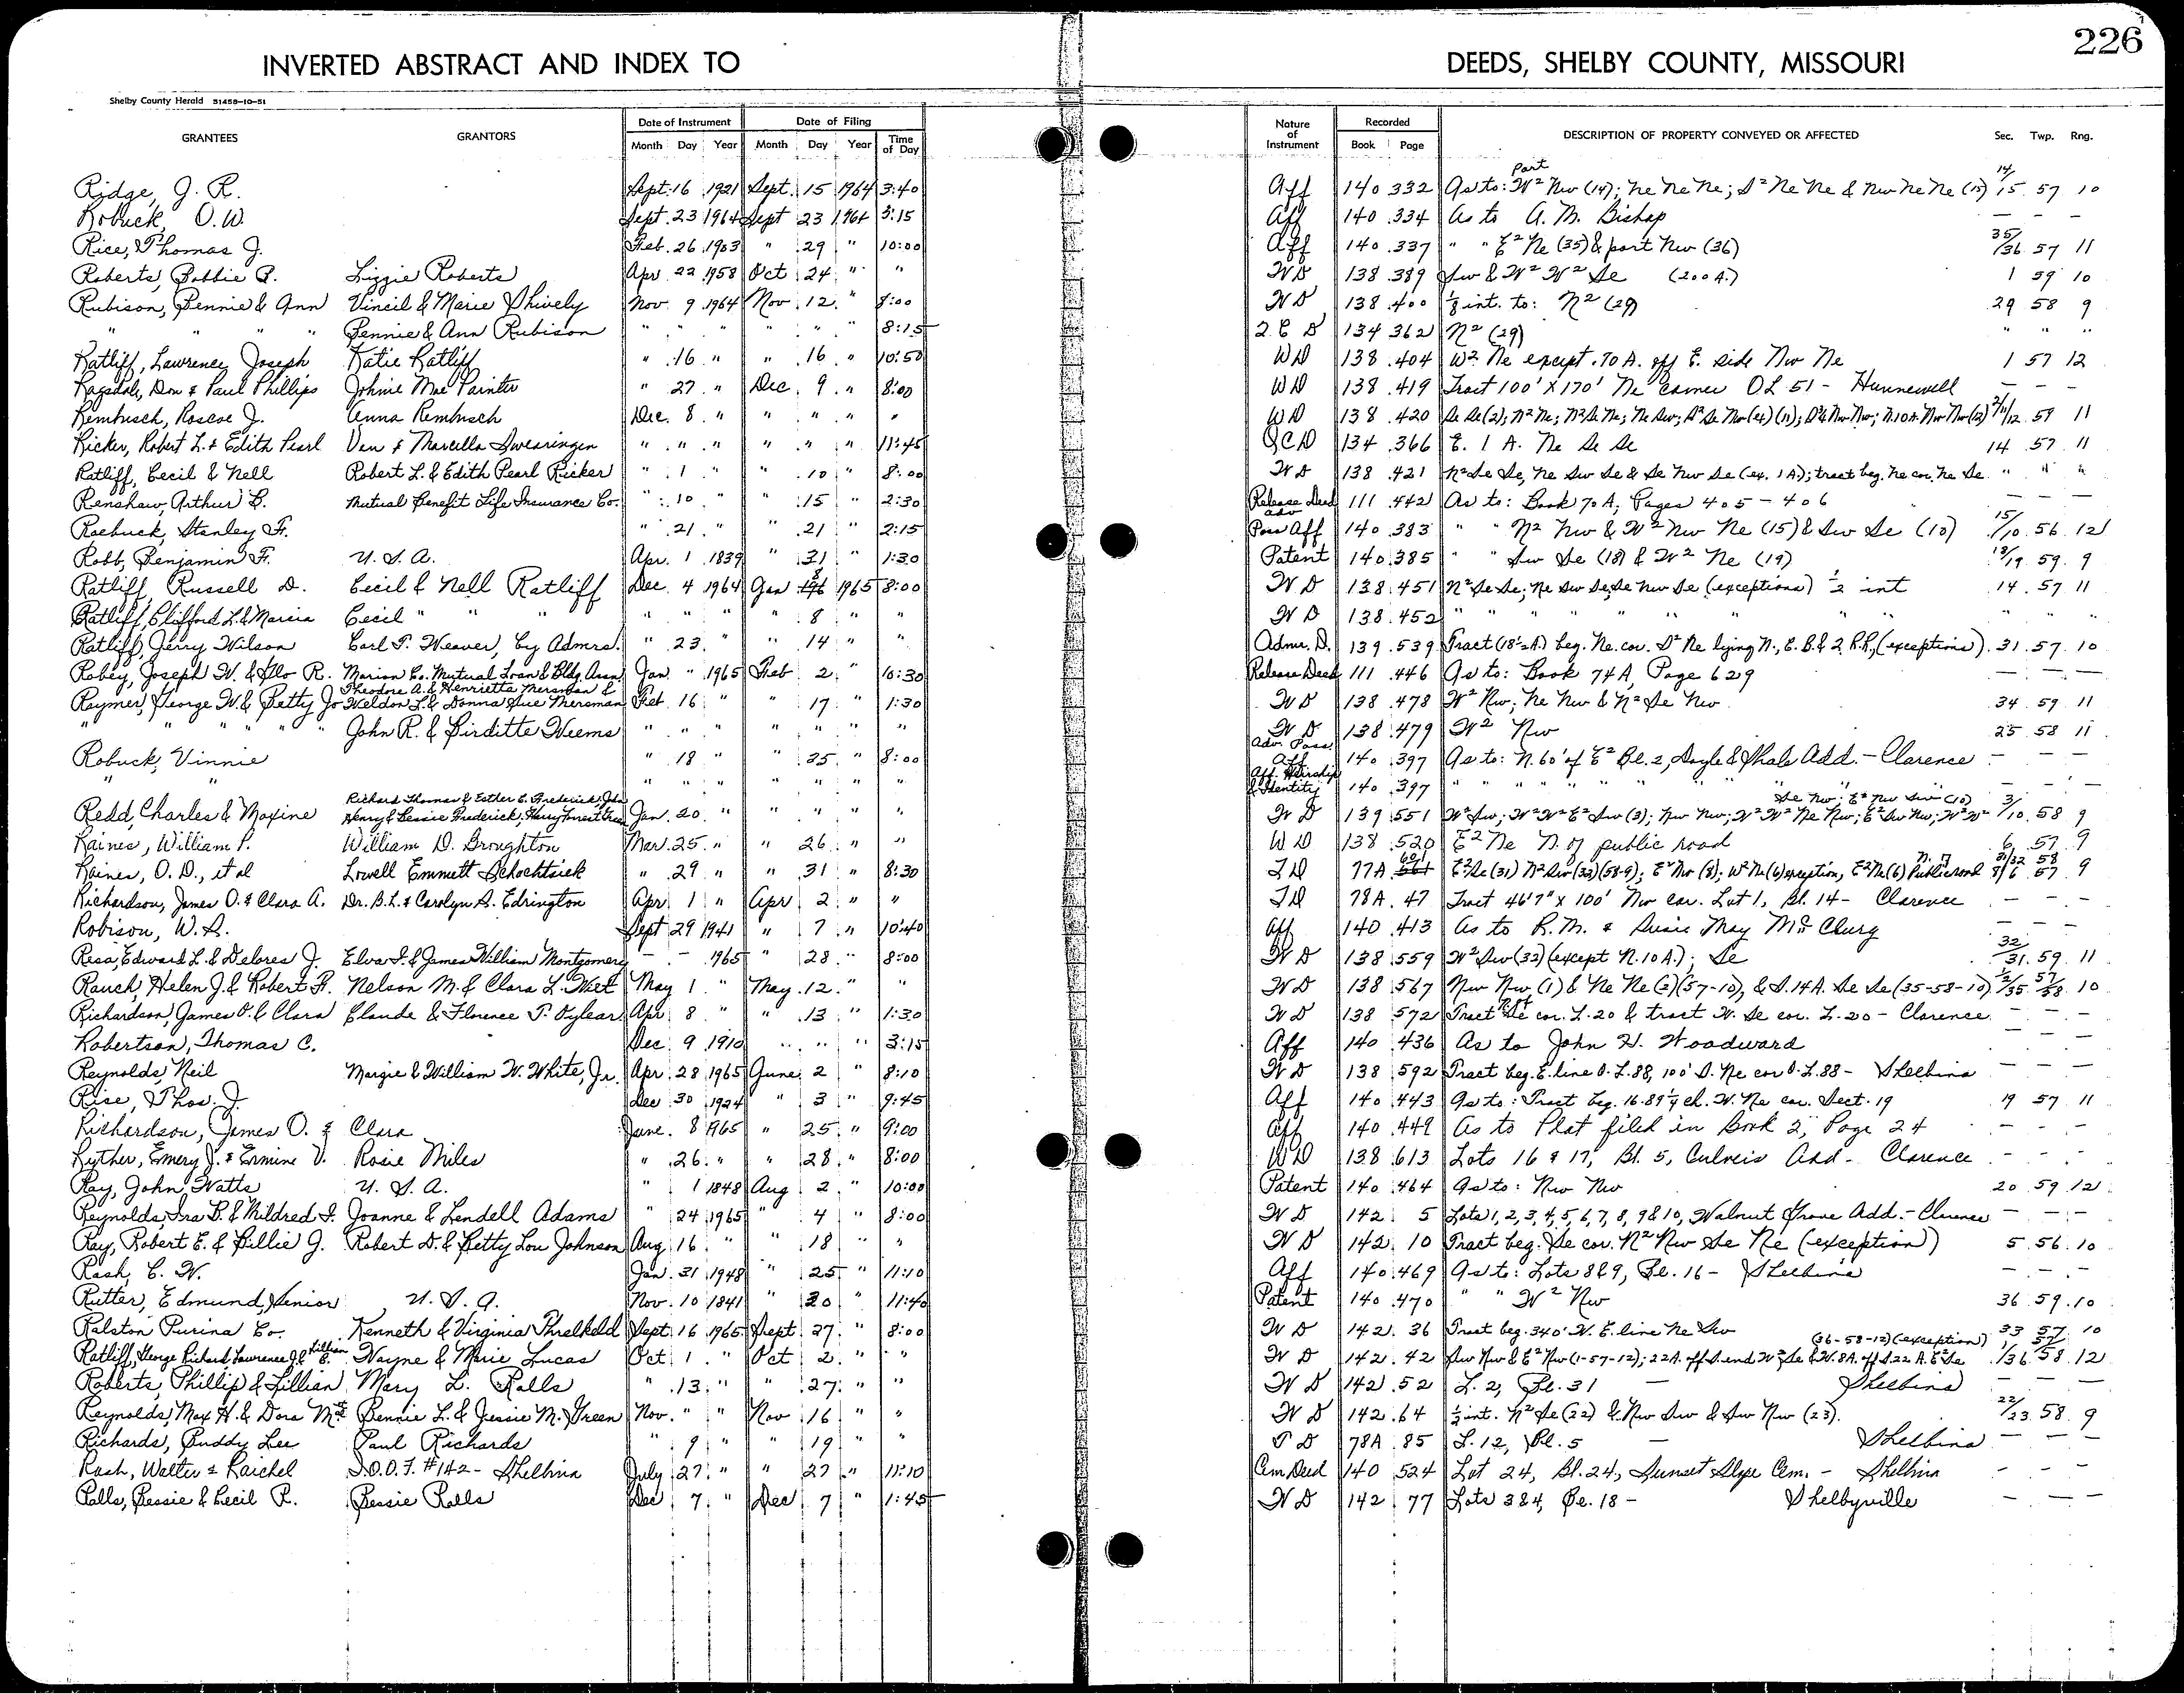 226
INVERTED ABSTRACT AND INDEX TO DEEDS, SHELBY COUNTY, MISSOURI
Shelby County Herald 51458-10-51
GRANTEES GRANTORS Date of Instrument Date of Filing Nature of Instrument Recorded DESCRIPTION OF PROPERTY CONVEYED OR AFFECTED Sec. Twp. Rng.
Month Day Year Month Day Year Time of Day Book Page
Ridge, J. R. Sept. 16 1921 Sept. 15 1964 3:40 Aff 140 332 As to: Part W² Nw (14); Ne Ne Ne; S² Ne Ne & Nw Ne Ne (15) 14/15 57 10
Robuck, O. W. Sept. 23 1964 Sept 23 1964 3:15 Aff 140 334 As to A. M. Bishop — — —
Rice, Thomas J. Feb. 26 1903 " 29 " 10:00 Aff 140 337 " " E² Ne (35) & part Nw (36) 35/36 57 11
Roberts, Bobbie B. Lizzie Roberts Apr 22 1958 Oct 24 " " W D 138 389 Sw & W² W² Se (200 A.) 1 59 10
Rubison, Bennie & Ann Vincil & Marie Shively Nov. 9 1964 Nov. 12 " 8:00 W D 138 400 ½ int. to: N² (29) 29 58 9
" " " " Bennie & Ann Rubison " " " " " " 8:15 Q C D 134 362 N² (29) " " "
Ratliff, Lawrence Joseph Katie Ratliff " 16 " " 16 " 10:50 WD 138 404 W² Ne except .70 A. off E. side Nw Ne 1 57 12
Ragsdale, Don & Paul Phillips Johnie Mae Painter " 27 " Dec. 9 " 8:00 WD 138 419 Tract 100' X 170' Ne Corner OL 51 - Hunnewell — — —
Rembusch, Roscoe J. Anna Rembusch Dec. 8 " " " " " WD 138 420 Se Se (2); N² Ne; N² Se Ne; Ne Sw; 59 11
Ricker, Robert L. & Edith Pearl Van & Marcella Swearingen " " " " " " 11:45 QCD 134 366 E. 1 A. Ne Se Se 14 57 11
Ratliff, Cecil & Nell Robert L. & Edith Pearl Ricker " 1 " " 10 " 8:00 W D 138 421 N² Se Se, Ne Sw Se & Se Nw Se (ex. 1 A); tract beg. Ne cor. Ne Se " " "
Renshaw, Arthur B. Mutual Benefit Life Insurance Co. " 10 " " 15 " 2:30 Release Deed 111 442 As to: Book 70 A, Pages 405 - 406 — — —
Roebuck, Stanley F. " 21 " " 21 " 2:15 Adv Poss Aff 140 383 " " N² Nw & W² Nw Ne (15) & Sw Se (10) 15/10 56 12
Robb, Benjamin F. U. S. A. Apr. 1 1839 " 31 " 1:30 Patent 140 385 " " Sw Se (18) & W² Ne (19) 18/19 59 9
Ratliff, Russell D. Cecil & Nell Ratliff Dec. 4 1964 Jan 8 1965 8:00 W D 138 451 N² Se Se; Ne Sw Se; Se Nw Se (exceptions) ½ int 14 57 11
Ratliff, Clifford L. & Marcia Cecil " " " " " " " 8 " " W D 138 452 " " " " " " " "
Ratliff, Jerry Wilson Carl P. Weaver, by Admrs. " 23 " " 14 " " Admr. D. 139 539 Tract (18½ A) beg. Ne. cor. S² Ne lying N., C. B. & Q. R.R., (exceptions) 31 57 10
Robey, Joseph W. & Flo R. Marion Co. Mutual Loan & Bldg. Assn. Jan. " 1965 Feb 2 " 10:30 Release Deed 111 446 As to: Book 74 A, Page 629 — — —
Raymer, George W. & Betty Jo Theodore A. & Henrietta Mersman & Weldon L. & Donna Sue Mersman Feb. 16 " " 17 " 1:30 W D 138 478 W² Nw; Ne Nw & N² Se Nw 34 59 11
" " " " " John R. & Birditte Weems " " " " " " " W D 138 479 W² Nw 25 58 11
Robuck, Vinnie " 18 " " 25 " 8:00 Adv. Poss. Aff 140 397 As to: N. 60' of E² Bl. 2, Doyle & Phals Add. - Clarence — — —
" " " " " " " " " Aff. Heirship & Identity 140 397 " " " " " " " " — — —
Redd, Charles & Maxine Richard Thomas & Esther C. Frederick; John Henry & Bessie Frederick; Harry Forrest Jan. 20 " " " " " W D 139 551 W² Sw; W² W² E² Sw (3); Nw Nw; W² W² Ne Nw; E² Sw Nw; Se Nw; E² Nw Sw (10) 3/10 58 9
Raines, William P. William D. Broughton Mar. 25 " " 26 " " WD 138 520 E² Ne N. of public road 6 57 9
Raines, O. D., et al Lowell Emmett Schochtsiek " 29 " " 31 " 8:30 T D 77A 601 E² Se (31) N² Sw (32) (58-9); E² Nw (8); W² Ne (6) exception, E² Ne (6) N. of Public road 31/32 58 8/6 57 9
Richardson, James O. & Clara A. Dr. B. L. & Carolyn S. Edrington Apr. 1 " Apr 2 " " T D 78A 47 Tract 46'7" x 100' Nw cor. Lot 1, Bl. 14 - Clarence — — —
Robison, W. S. Sept 29 1941 " 7 " 10:40 Aff 140 413 As to R. M. & Susie May McClurg — — —
Resa, Edward L. & Delores J. Elva I. & James William Montgomery — — 1965 " 28 " 8:00 W D 138 559 W² Sw (32) (except N. 10 A.); Se 32/31 59 11
Rauch, Helen J. & Robert F. Nelson M. & Clara L. Wiet May 1 " May 12 " " W D 138 567 Nw Nw (1) & Ne Ne (2) (57-10), & S. 14 A. Se Se (35-58-10) 1/2/35 57/58 10
Richardson, James O. & Clara Claude & Florence P. Oylear Apr. 8 " " 13 " 1:30 W D 138 572 Tract Se cor. L. 20 & tract N. Se cor. L. 20 - Clarence — — —
Robertson, Thomas C. Dec. 9 1910 " " " 3:15 Aff 140 436 As to John H. Woodward — —
Reynolds, Neil Margie & William W. White, Jr. Apr. 28 1965 June 2 " 8:10 W D 138 592 Tract beg. E. line O. L. 88, 100' S. Ne cor O. L. 88 - Shelbina — — —
Rice, Thos. J. Dec 30 1924 " 3 " 9:45 Aff 140 443 As to: Tract beg. 16.89¼ ch. W. Ne cor. Sect. 19 19 57 11
Richardson, James O. & Clara June. 8 1965 " 25 " 9:00 Aff 140 449 As to Plat filed in Book 2, Page 24 — — —
Ryther, Emery J. & Ermine V. Rosie Miles " 26 " " 28 " 8:00 WD 138 613 Lots 16 & 17, Bl. 5, Culvers Add - Clarence — — —
Ray, John Watts U. S. A. " 1 1848 Aug 2 " 10:00 Patent 140 464 As to: Nw Nw 20 59 12
Reynolds, Ira B. & Mildred I. Joanne & Lendell Adams " 24 1965 " 4 " 8:00 W D 142 5 Lots 1, 2, 3, 4, 5, 6, 7, 8, 9 & 10, Walnut Grove Add. - Clarence — — —
Ray, Robert E. & Billie J. Robert D. & Betty Lou Johnson Aug 16 " " 18 " " W D 142 10 Tract beg. Se cor. N² Nw Se Ne (exception) 5 56 10
Rash, C. W. Jan. 31 1948 " 25 " 11:10 Aff 140 469 As to: Lots 8 & 9, Bl. 16 - Shelbina — — —
Rutter, Edmund, Senior U. S. A. Nov. 10 1841 " 30 " 11:40 Patent 140 470 " " W² Nw 36 59 10
Ralston Purina Co. Kenneth & Virginia Threlkeld Sept. 16 1965 Sept. 27 " 8:00 W D 142 36 Tract beg. 340' N. E. line Ne Sw 33 57 10
Ratliff, George Richard, Lawrence J. & Lillian E. Wayne & Marie Lucas Oct 1 " Oct 2 " " W D 142 42 Sw Nw & E² Nw (1-57-12); 22 A. off S. end W² Se & W. 8A. off S. 22 A. E² Se (36-58-12) (exception) 1/36 57/58 12
Roberts, Phillip & Lillian Mary L. Ralls " 13 " " 27 " " W D 142 52 L. 2, Bl. 31 — Shelbina — — —
Reynolds, Max H. & Dora Bennie L. & Jessie M. Green Nov. " " Nov 16 " " W D 142 64 ½ int. N² Se (22) & Nw Sw & Sw Nw (23) 22/23 58 9
Richards, Buddy Lee Paul Richards " 9 " " 19 " " T D 78A 85 L. 12, Bl. 5 — Shelbina — — —
Rash, Walter & Raichel I.O.O.F. #142 - Shelbina July 27 " " 27 " 11:10 Cem Deed 140 524 Lot 24, Bl. 24, Sunset Slope Cem. - Shelbina — — —
Ralls, Bessie & Cecil R. Bessie Ralls Dec 7 " Dec 7 " 1:45 W D 142 77 Lots 3 & 4, Bl. 18 - Shelbyville — — —